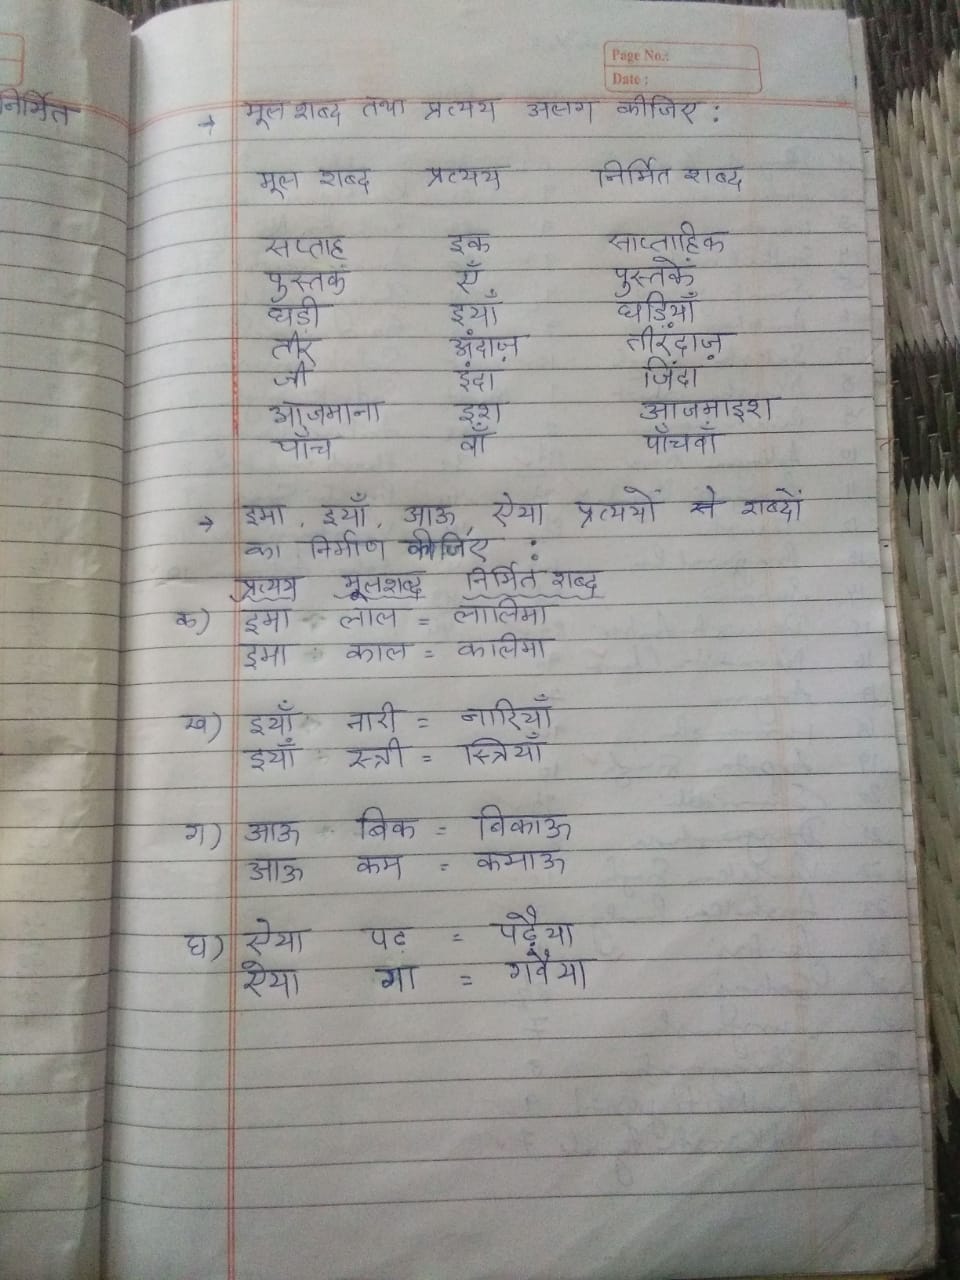 Page No.:
Date :
निर्मित
→ मूल शब्द तथा प्रत्यय अलग कीजिए :
मूल शब्द प्रत्यय निर्मित शब्द
सप्ताह इक साप्ताहिक
पुस्तक एँ पुस्तकें
घड़ी इयाँ घड़ियाँ
तीर अंदाज़ तीरंदाज़
जी इंदा जिंदा
आजमाना इश आजमाइश
पाँच वाँ पाँचवाँ
→ इमा , इयाँ , आऊ , ऐया प्रत्ययों से शब्दों
का निर्माण कीजिए :
प्रत्यय मूलशब्द निर्मित शब्द
क) इमा लाल = लालिमा
इमा काल = कालिमा
ख) इयाँ नारी = नारियाँ
इयाँ स्त्री = स्त्रियाँ
ग) आऊ बिक = बिकाऊ
आऊ कम = कमाऊ
घ) ऐया पढ़ = पढ़ैया
ऐया गा = गवैया